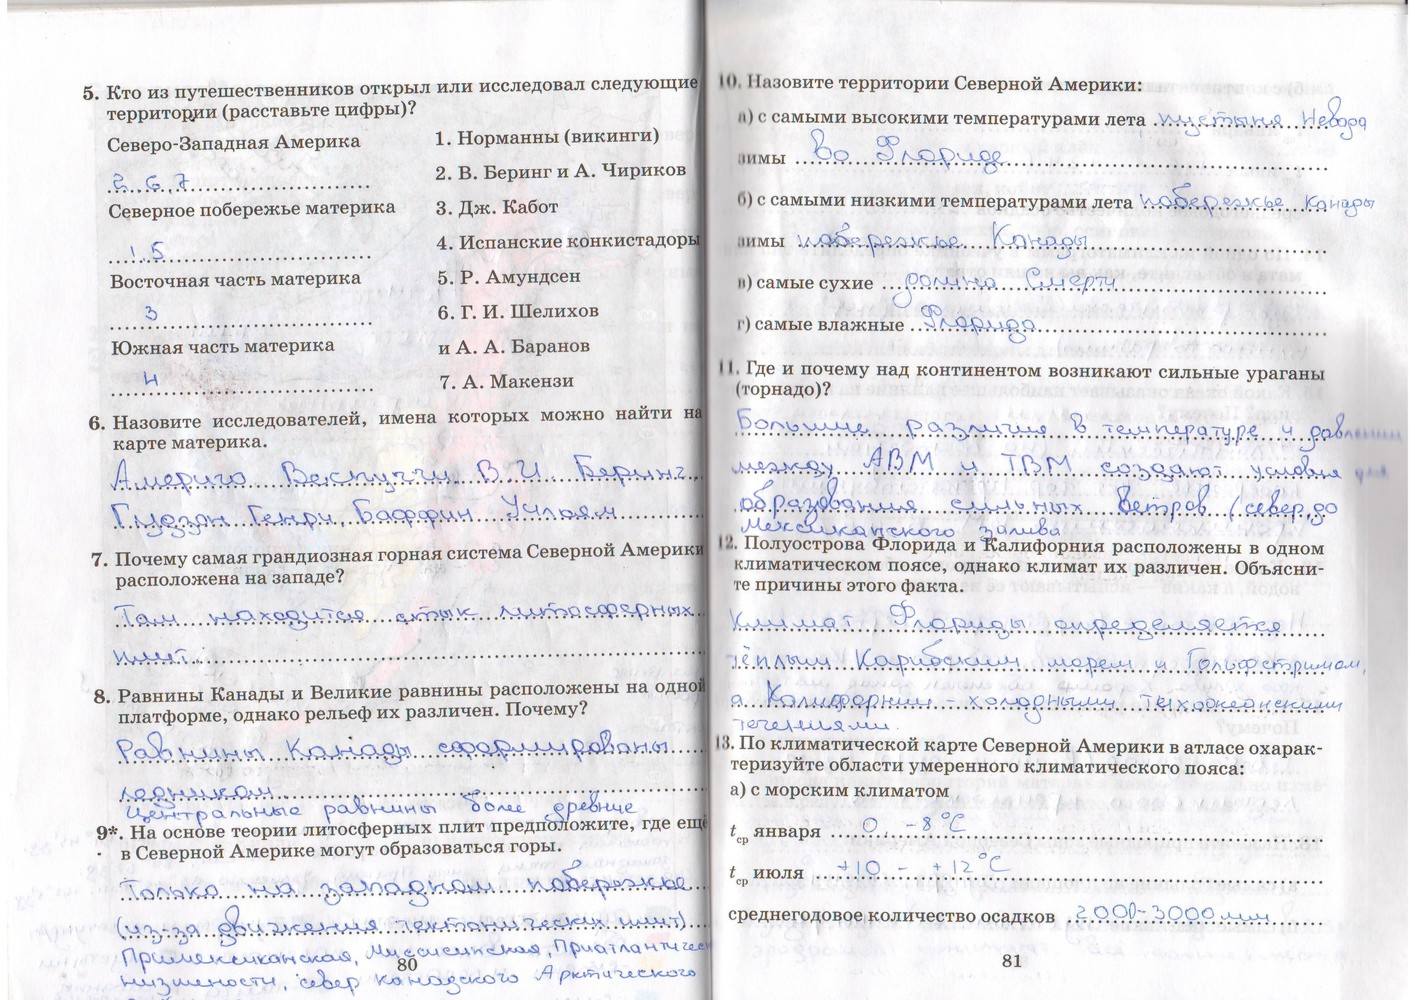 5. Кто из путешественников открыл или исследовал следующие
территории (расставьте цифры)?
Северо-Западная Америка
2, 6, 7
Северное побережье материка
1, 5
Восточная часть материка
3
Южная часть материка
4
1. Норманны (викинги)
2. В. Беринг и А. Чириков
3. Дж. Кабот
4. Испанские конкистадоры
5. Р. Амундсен
6. Г. И. Шелихов
и А. А. Баранов
7. А. Макензи
6. Назовите исследователей, имена которых можно найти на
карте материка.
Америго Веспуччи, В. И. Беринг,
Гудзон Генри, Баффин Уильям
7. Почему самая грандиозная горная система Северной Америки
расположена на западе?
Там находится стык литосферных
плит.
8. Равнины Канады и Великие равнины расположены на одной
платформе, однако рельеф их различен. Почему?
Равнины Канады сформированы
ледником
Центральные равнины более древние
9*. На основе теории литосферных плит предположите, где ещё
в Северной Америке могут образоваться горы.
Только на западном побережье
(из-за движения тектонических плит)
Примексиканская, Миссисипская, Приатлантическ
низменности, север канадского Арктического
80
10. Назовите территории Северной Америки:
а) с самыми высокими температурами лета пустыня Невада
зимы во Флориде
б) с самыми низкими температурами лета побережье Канады
зимы побережье Канады
в) самые сухие долина Смерти
г) самые влажные Флорида
11. Где и почему над континентом возникают сильные ураганы
(торнадо)?
Большие различия в температуре и давлении
между АВМ и ТВМ создают условия для
образования сильных ветров (север, до
Мексиканского залива
12. Полуострова Флорида и Калифорния расположены в одном
климатическом поясе, однако климат их различен. Объясни-
те причины этого факта.
Климат Флориды определяется
тёплым Карибским морем и Гольфстримом,
а Калифорнии - холодными тихоокеанскими
течениями.
13. По климатической карте Северной Америки в атласе охарак-
теризуйте области умеренного климатического пояса:
а) с морским климатом
tср января 0, -8°C
tср июля +10 - +12°C
среднегодовое количество осадков 2000-3000 мм
81